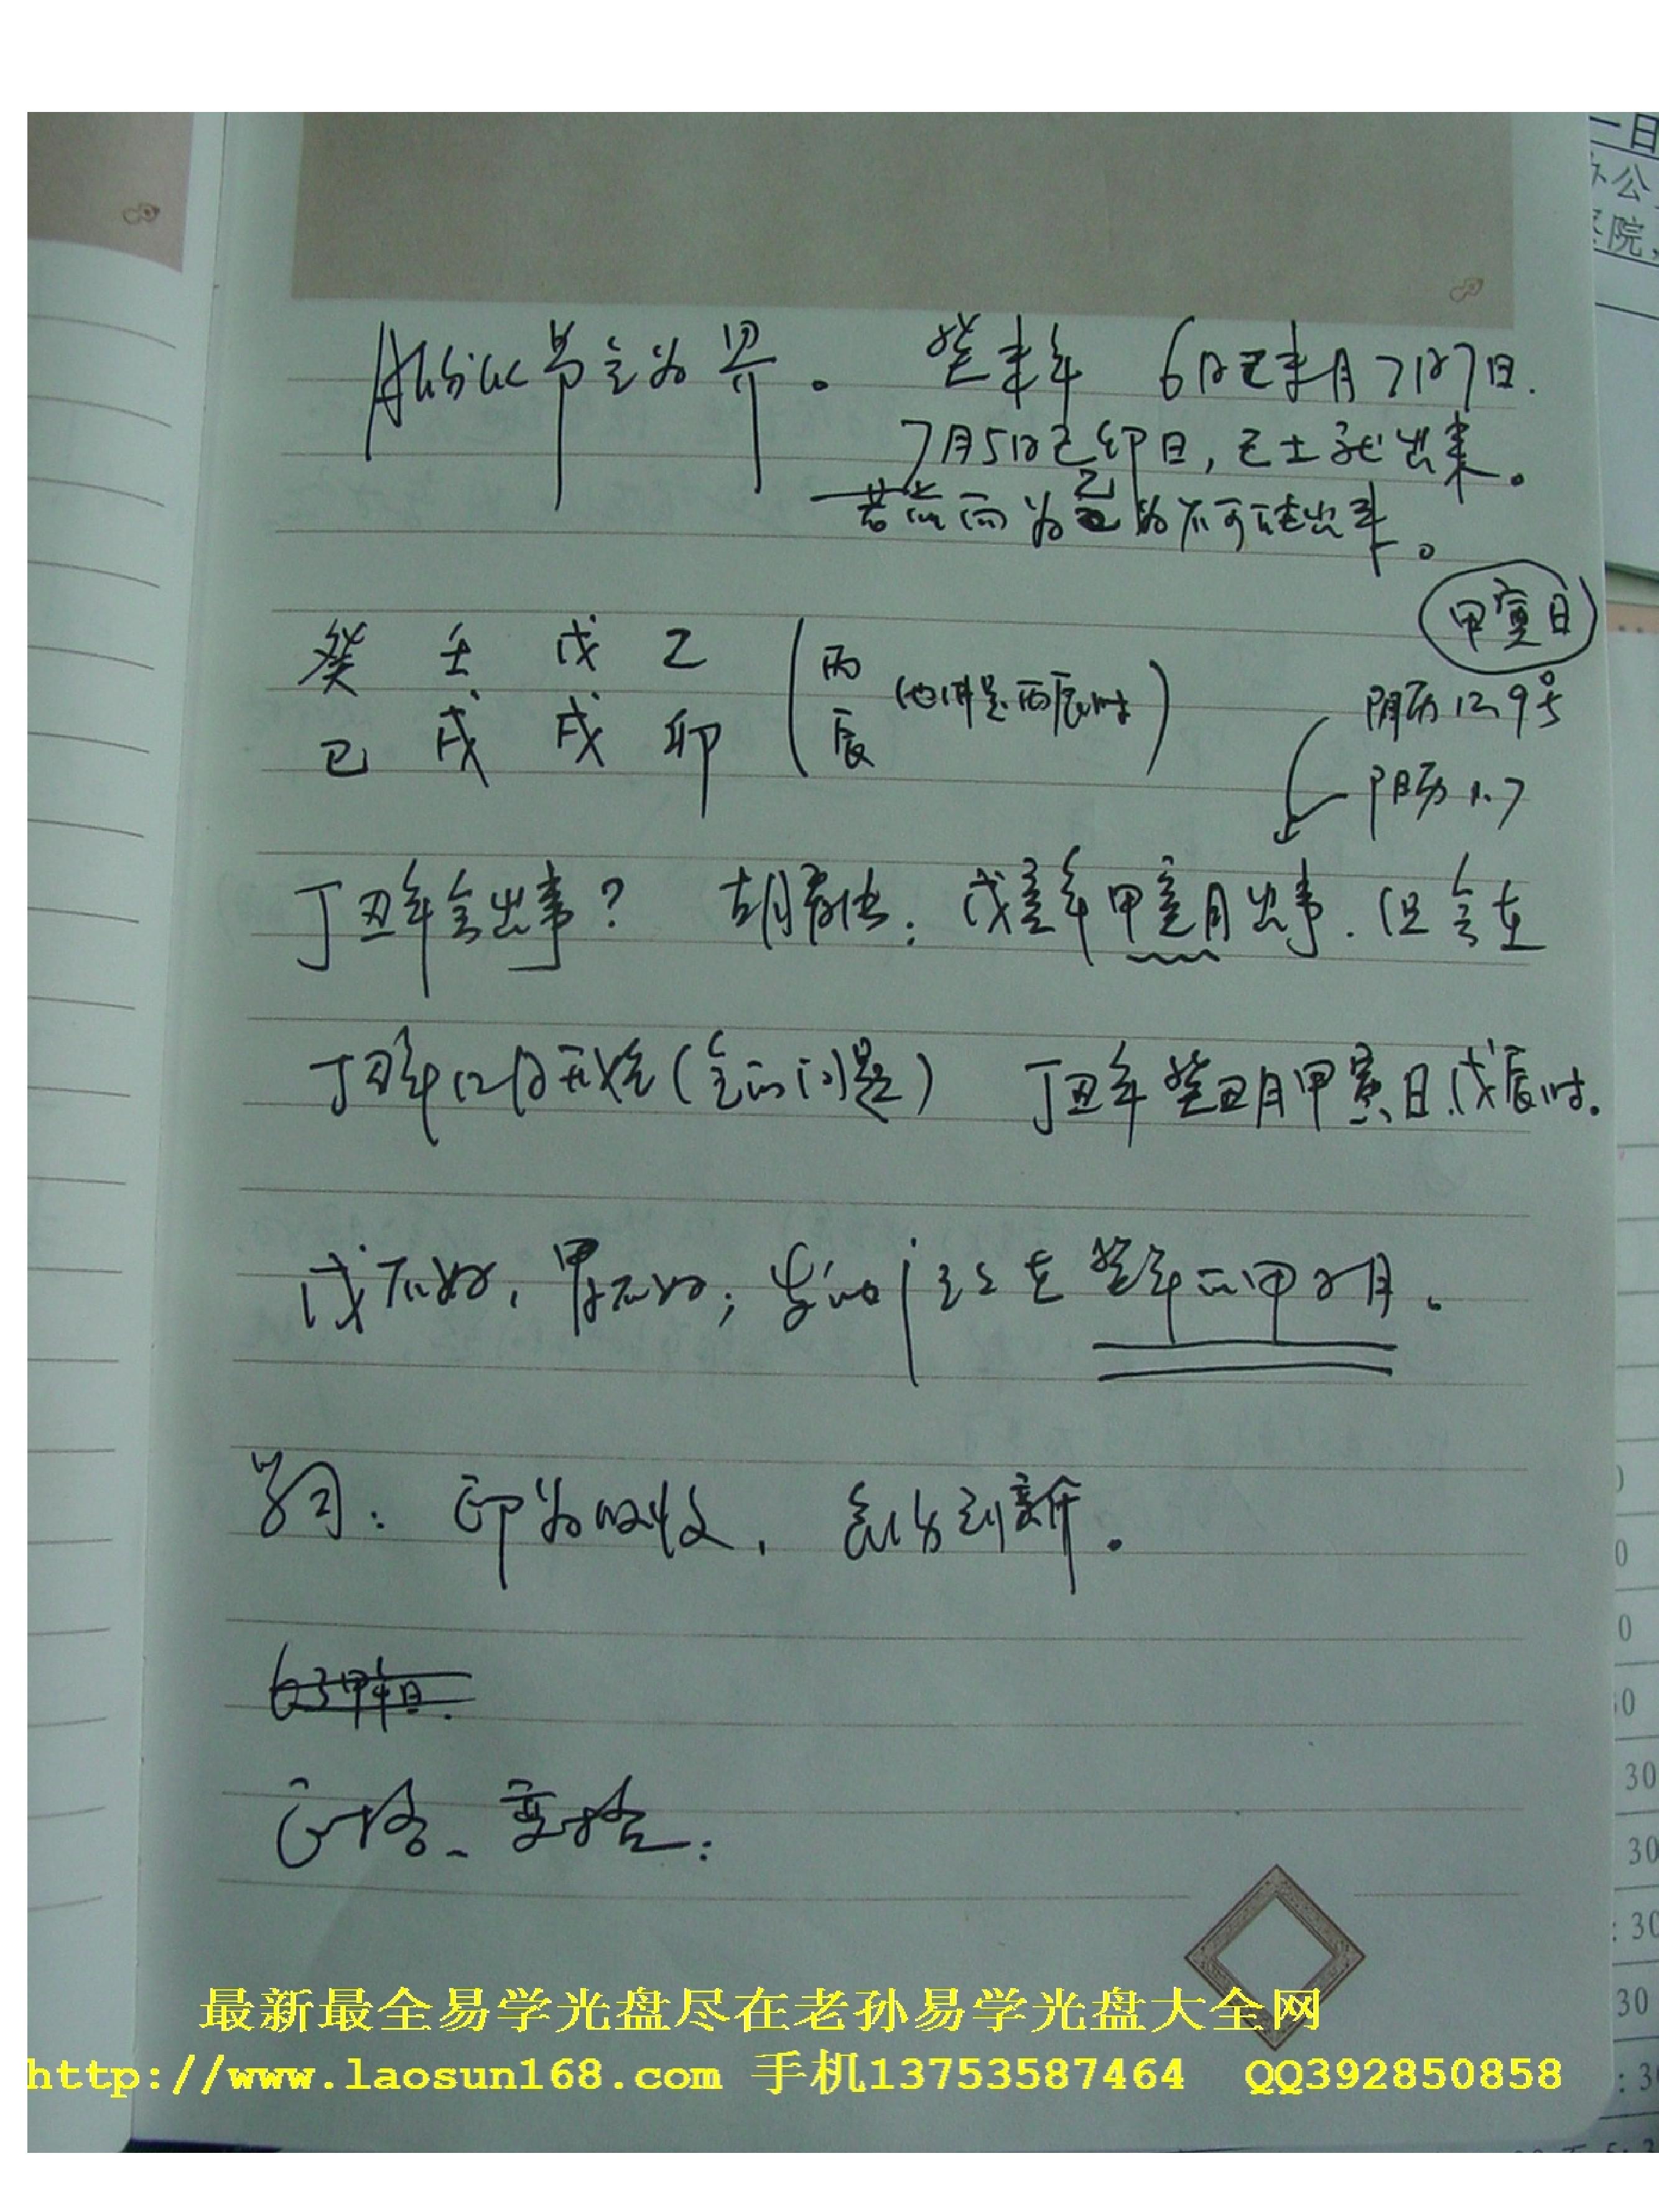 月份以节令为界。 癸未年 6月己未月7月7日.
7月5日己卯日, 己土就出来。
若 为乙 为不可能出来。
甲寅日
癸 壬 戊 乙 (丙
巳 戌 戌 卯 辰 (他讲是丙辰时)
阴历12.9号
阳历1.7
丁丑年会出事? 胡看法: 戊寅年甲寅月出事. 但会在
丁丑年12月开始( 的问题) 丁丑年癸丑月甲寅日戊辰时.
戊不好, 甲不好; 在癸年 甲 月.
学习: 印为吸收, 创新.
正格、变格:
最新最全易学光盘尽在老孙易学光盘大全网
http://www.laosun168.com 手机13753587464 QQ392850858
一日
办公
医院,
0
0
0
30
30
30
:30
30
:3